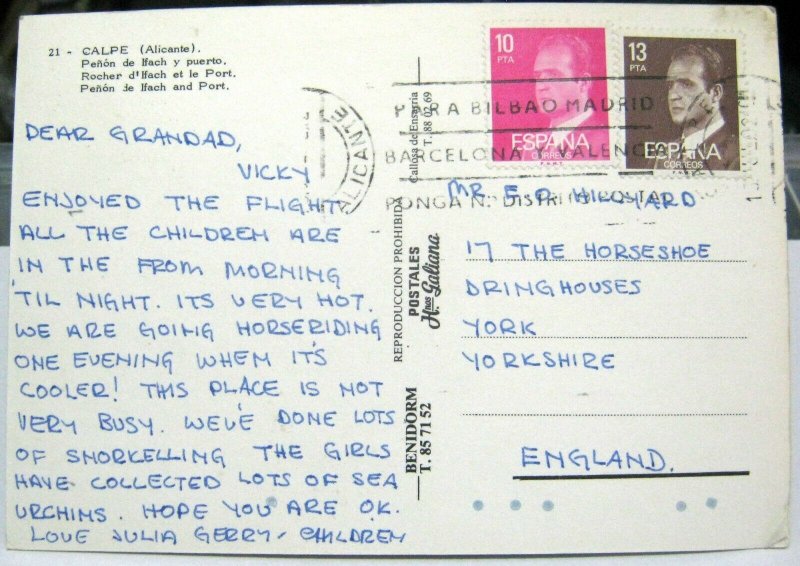 21 - CALPE (Alicante).
Peñón de Ifach y puerto.
Rocher d'Ifach et le Port.
Peñón de Ifach and Port.
DEAR GRANDAD,
VICKY
ENJOYED THE FLIGHT
ALL THE CHILDREN ARE
IN THE FROM MORNING
'TIL NIGHT. ITS VERY HOT.
WE ARE GOING HORSERIDING
ONE EVENING WHEN IT'S
COOLER! THIS PLACE IS NOT
VERY BUSY. WE'VE DONE LOTS
OF SNORKELLING THE GIRLS
HAVE COLLECTED LOTS OF SEA
URCHINS. HOPE YOU ARE OK.
LOVE JULIA GERRY - CHILDREN
REPRODUCCION PROHIBIDA
Callosa de Ensarria
T. 88 02 69
POSTALES
Hnos Galiana
BENIDORM
T. 85 71 52
10
PTA
ESPAÑA
CORREOS
13
PTA
ESPAÑA
CORREOS
ALICANTE
PARA BILBAO MADRID
BARCELONA Y VALENCIA
PONGA N. DISTRITO POSTAL
MR. E. O. HILLYARD
17 THE HORSESHOE
DRINGHOUSES
YORK
YORKSHIRE
ENGLAND.